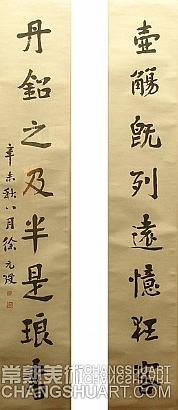 壺觴既列遠憶狂
丹鉛之及半是琅
辛未秋八月徐元
常熟美術
CHANGSHUART
CHANGSHUART.COM